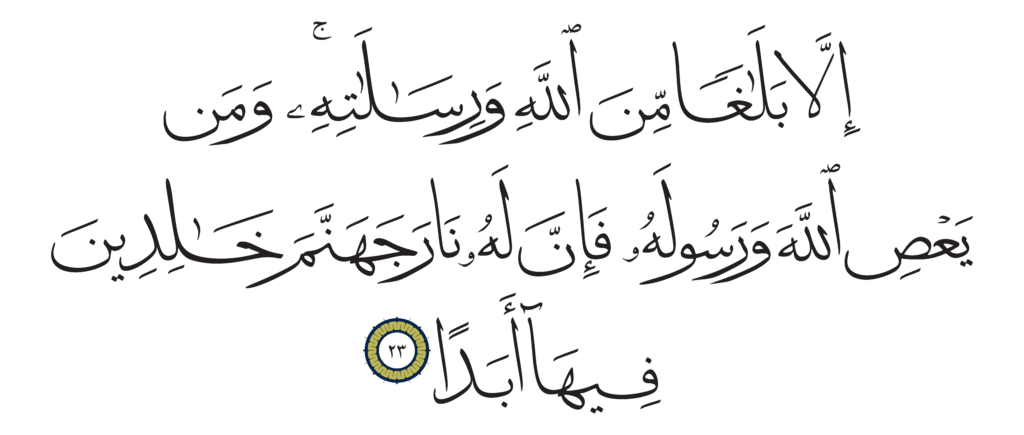 إِلَّا بَلَـٰغًا مِّنَ ٱللَّهِ وَرِسَـٰلَـٰتِهِۦ ۚ وَمَن
يَعْصِ ٱللَّهَ وَرَسُولَهُۥ فَإِنَّ لَهُۥ نَارَ جَهَنَّمَ خَـٰلِدِينَ
فِيهَآ أَبَدًا ٢٣